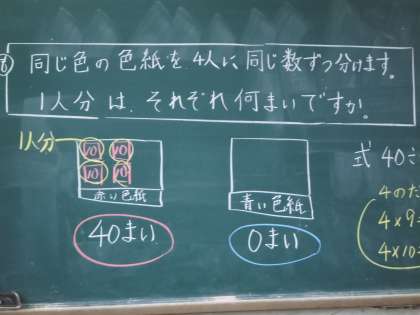 同じ色の色紙を4人に同じ数ずつ分けます。
1人分は、それぞれ何まいですか。
1人分
10 10
10 10
赤い色紙
青い色紙
40まい
0まい
式 40÷
4の
4×9
4×10